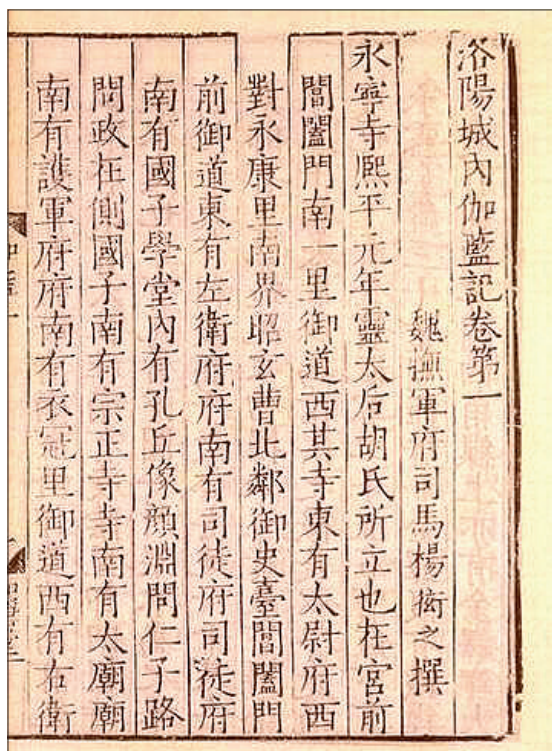 洛陽城內伽藍記卷第一
魏撫軍府司馬楊衒之撰
永寧寺熙平元年靈太后胡氏所立也在宮前
閶闔門南一里御道西其寺東有太尉府西
對永康里南界昭玄曹北鄰御史臺閶闔門
前御道東有左衛府府南有司徒府司徒府
南有國子學堂內有孔丘像顏淵問仁子路
問政在側國子南有宗正寺寺南有太廟廟
南有護軍府府南有衣冠里御道西有右衛